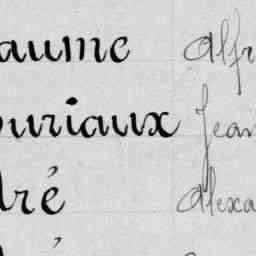 aume Alfr
uriaux Jean
dré Alexa